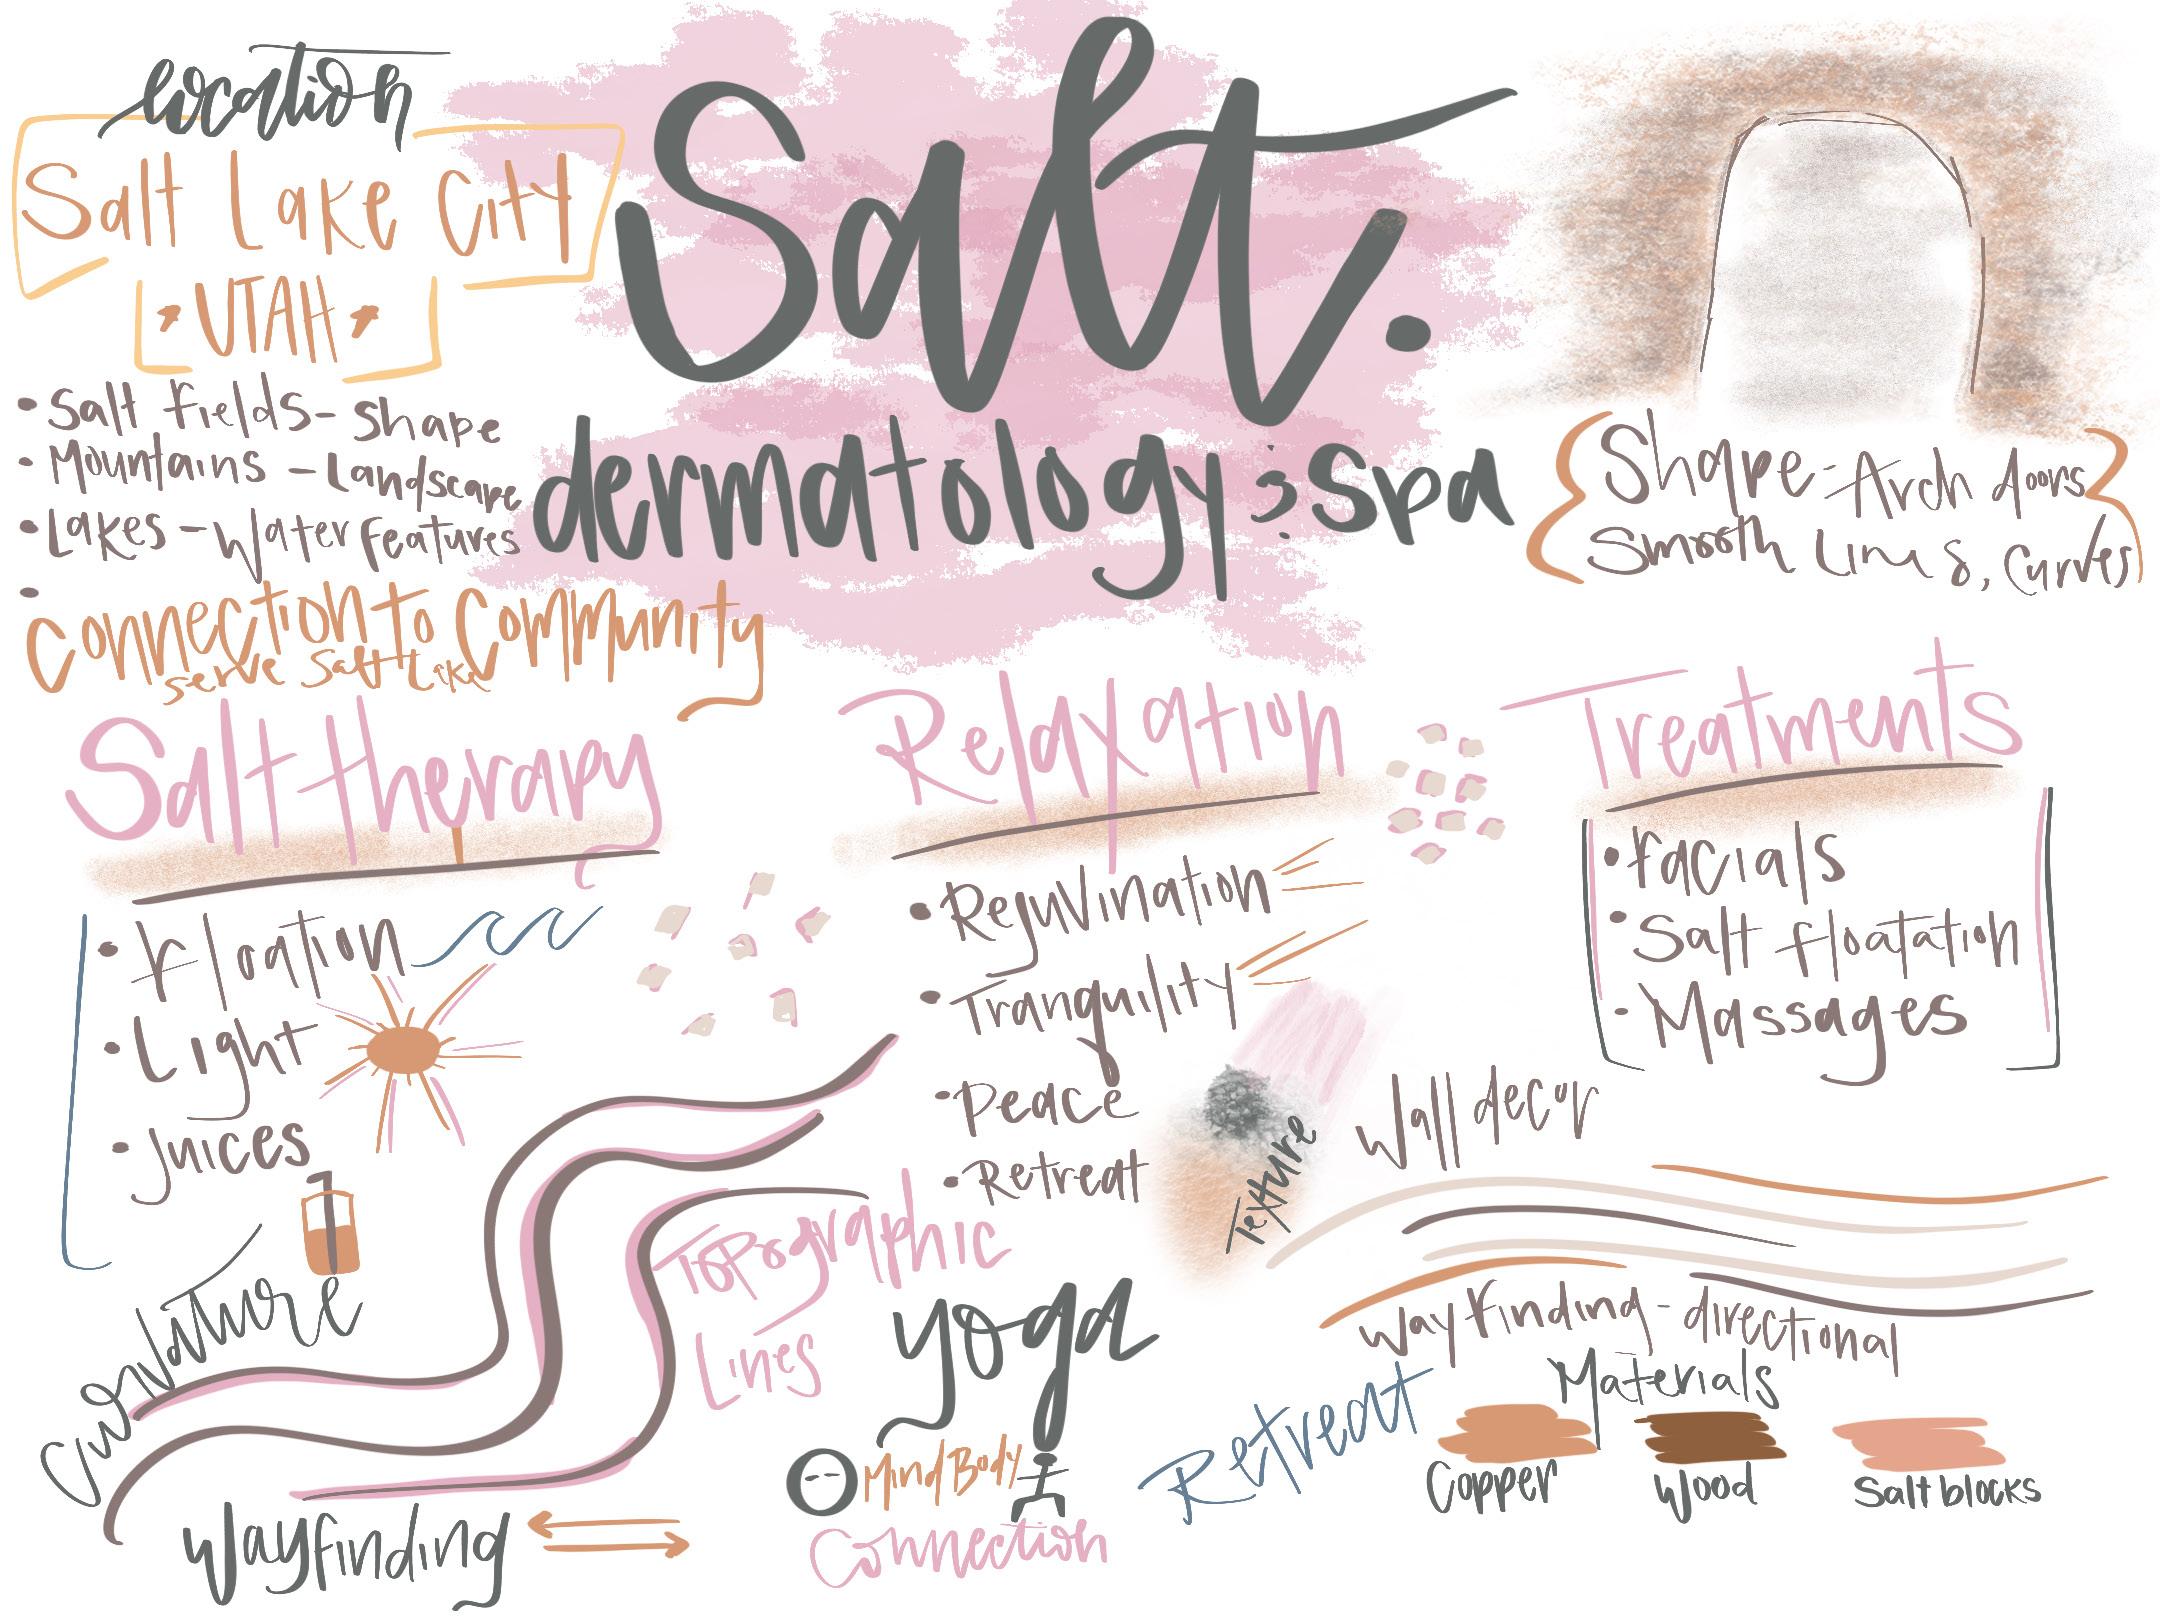 location
Salt Lake City
• UTAH •
• Salt Fields - Shape
• Mountains - Landscape
• Lakes - Water Features
•
Connection to Community
serve Salt Lake
Salt.
dermatology & Spa
Shape - Arch doors
Smooth Lines, Curves
Salt therapy
• Floation
• Light
• Juices
Relaxation
• Rejuvination
• Tranquility
• Peace
• Retreat
Treatments
• Facials
• Salt floatation
• Massages
Texture
Wall decor
Wayfinding - directional
Curvature
Topographic
Lines
Wayfinding
yoga
Mind Body
Connection
Retreat
Materials
Copper
Wood
Salt blocks